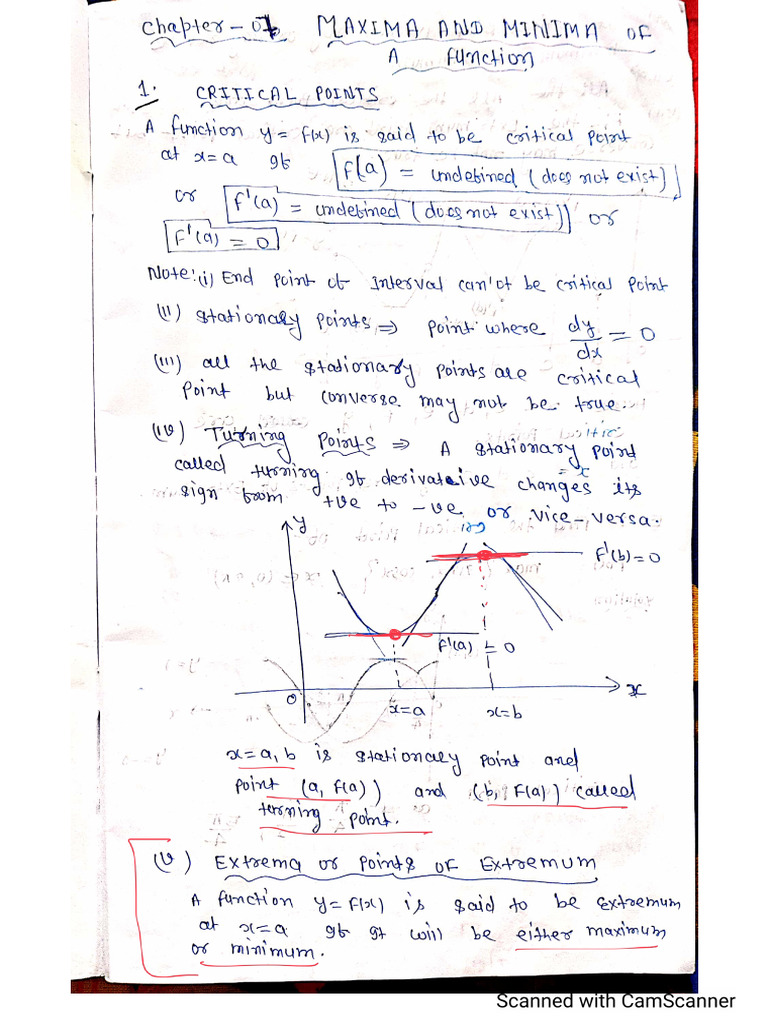 Chapter - 07 MAXIMA AND MINIMA OF
A Function
1. CRITICAL POINTS
A function y = f(x) is said to be critical point
at x=a If f(a) = undefined (does not exist)
or f'(a) = undefined (does not exist) or
f'(a) = 0
Note: (i) End point of Interval can'ot be critical point
(ii) Stationary points ⇒ point where dy/dx = 0
(iii) all the stationary points are critical
point but converse may not be true.
(iv) Turning Points ⇒ A stationary point
called turning If derivateive changes its
sign from +ve to -ve or vice-versa.
y
f'(b)=0
f'(a) = 0
O
x=a
x=b
x
x=a, b is stationary point and
point (a, f(a)) and (b, f(a)) called
turning point.
(v) Extrema or Points of Extremum
A function y = f(x) is said to be extremum
at x=a If It will be either maximum
or minimum.
Scanned with CamScanner